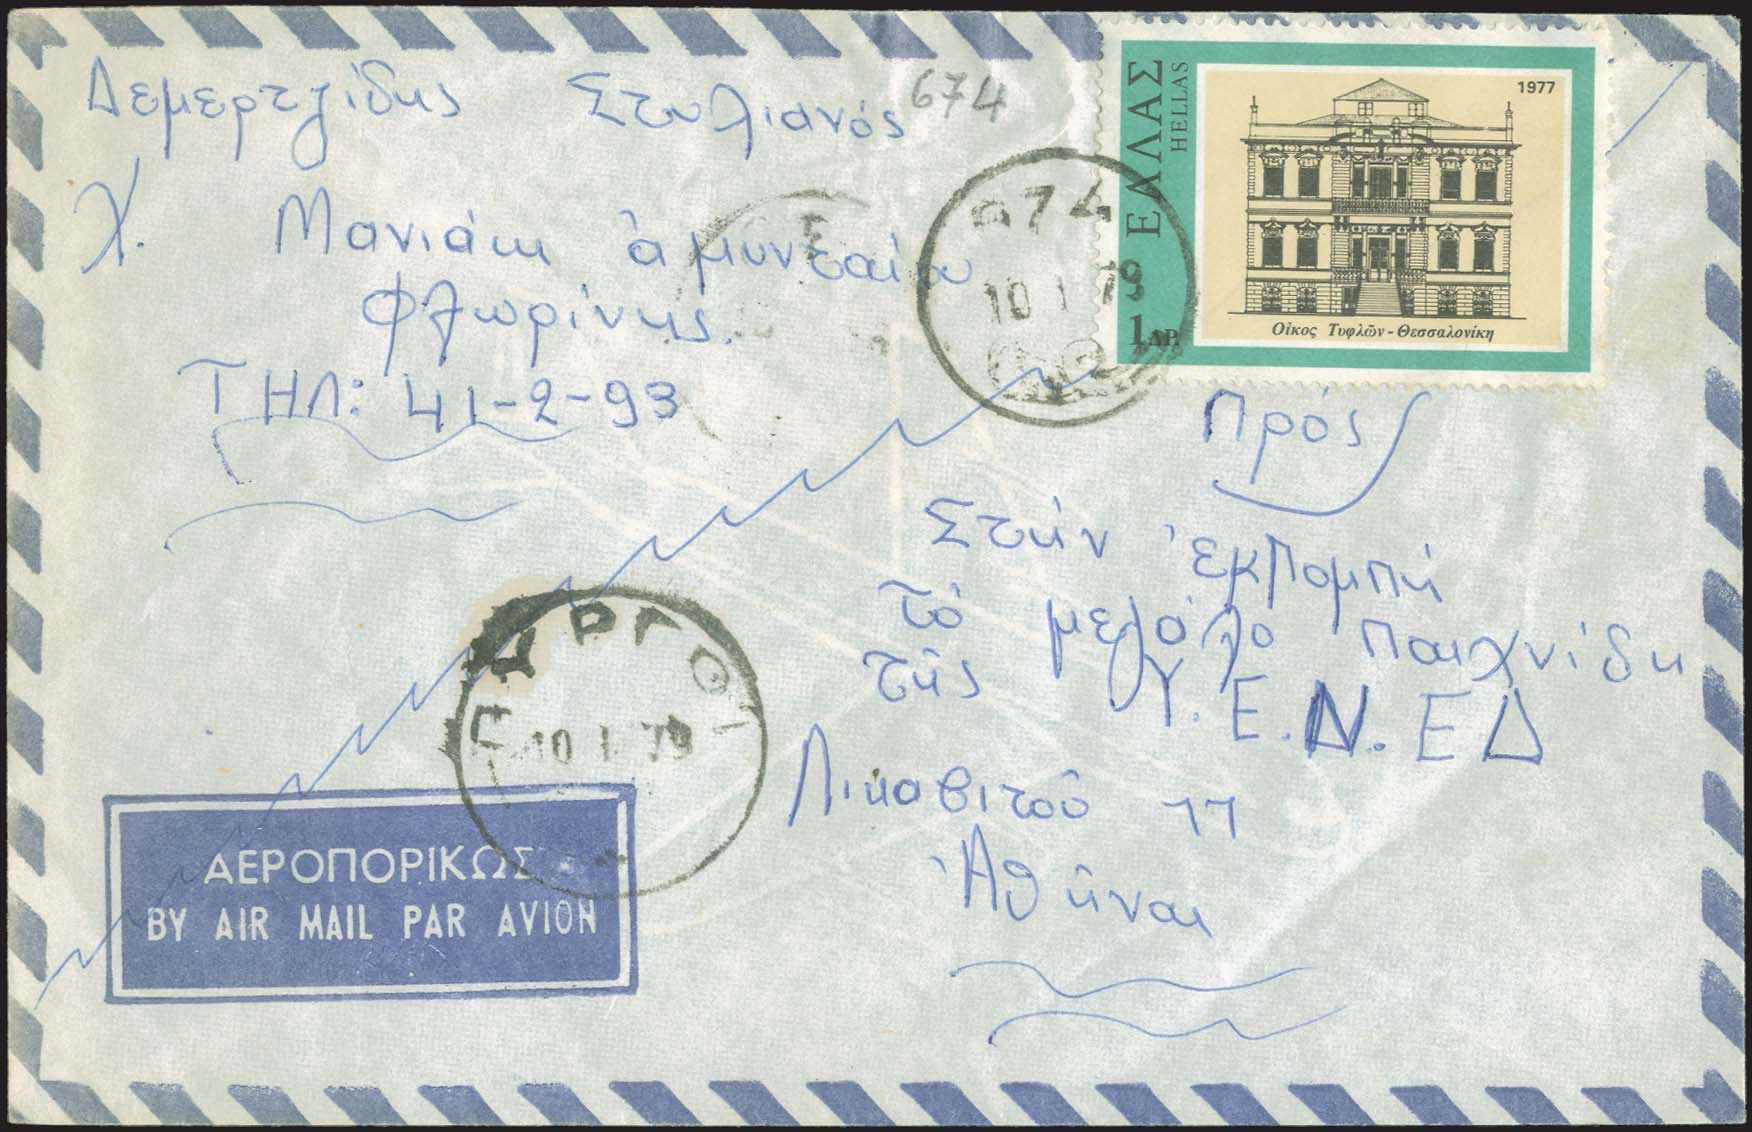 Δεμερτζίδης Στυλιανός
674
Χ. Μανιάκι ἀμυνταίου
Φλωρίνης.
ΤΗΛ: 41-2-93
ΕΛΛΑΣ
HELLAS
1977
1 ΔΡ.
Οἶκος Τυφλῶν - Θεσσαλονίκη
674
10 Ι 79
Πρός
Στήν ἐκπομπή
τό μεγάλο παιχνίδι
τῆς Υ.Ε.Ν.ΕΔ
Λικαβιτοῦ 11
Ἀθῆναι
10 Ι 79
ΑΕΡΟΠΟΡΙΚΩΣ
BY AIR MAIL PAR AVION